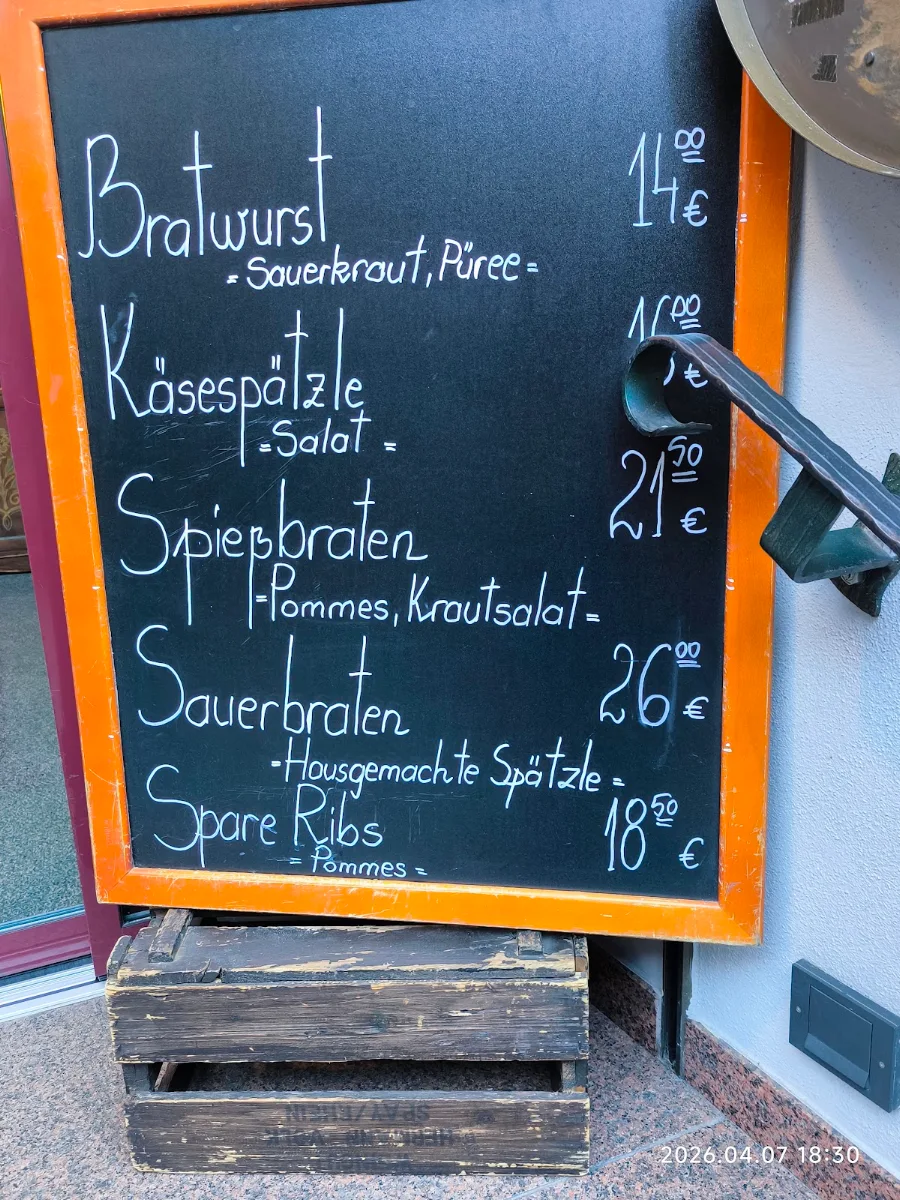 Bratwurst 14⁰⁰ €
= Sauerkraut, Püree =
Käsespätzle €
= Salat =
Spießbraten 21⁵⁰ €
= Pommes, Krautsalat =
Sauerbraten 26⁰⁰ €
- Hausgemachte Spätzle =
Spare Ribs 18⁵⁰ €
= Pommes =
2026.04.07 18:30